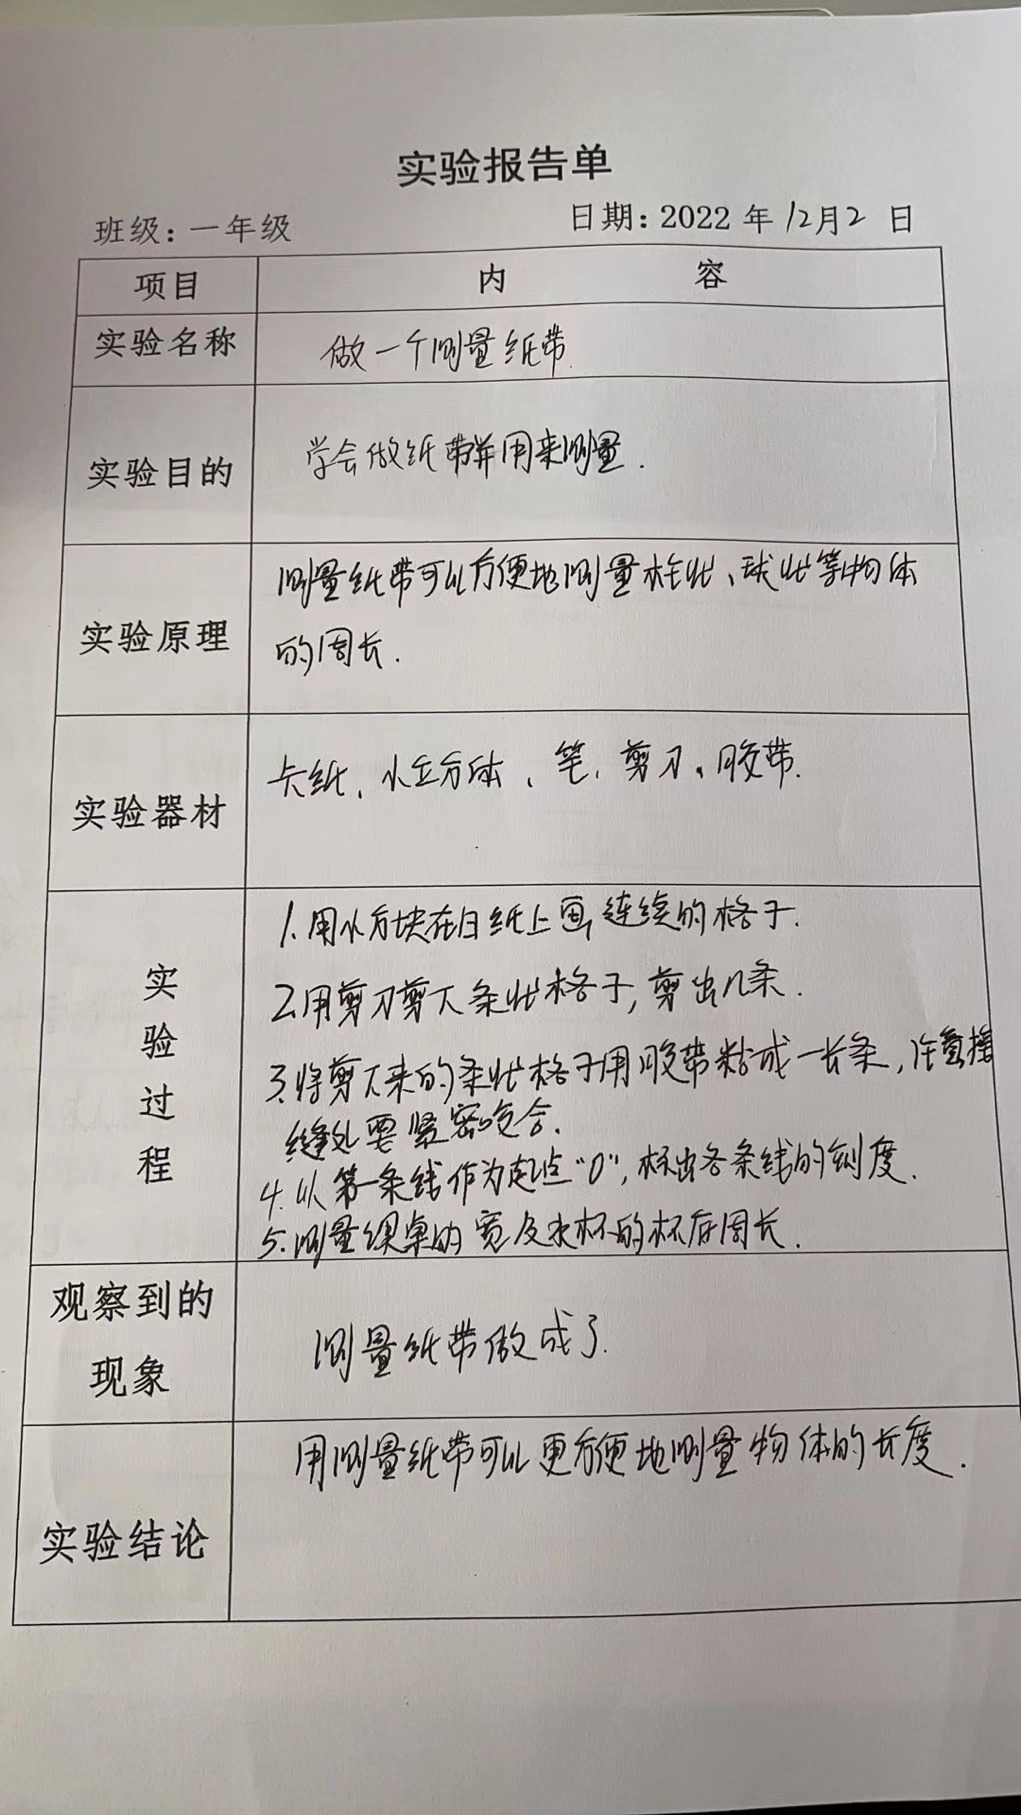 实验报告单
班级：一年级 日期：2022 年 12月2 日
项目 内 容
实验名称 做一个测量纸带
实验目的 学会做纸带并用来测量.
测量纸带可以方便地测量柱状、球状等物体
实验原理
的周长.
卡纸、小立方体、笔、剪刀、胶带.
实验器材
实验过程
1.用小方块在白纸上画连续的格子.
2.用剪刀剪下条状格子，剪出几条.
3.将剪下来的条状格子用胶带粘成一长条，注意接
缝处要紧密吻合.
4.从第一条线作为起点“0”，标出各条线的刻度.
5.测量课桌的宽及水杯的杯存周长.
观察到的
现象
测量纸带做成了.
用测量纸带可以更方便地测量物体的长度.
实验结论